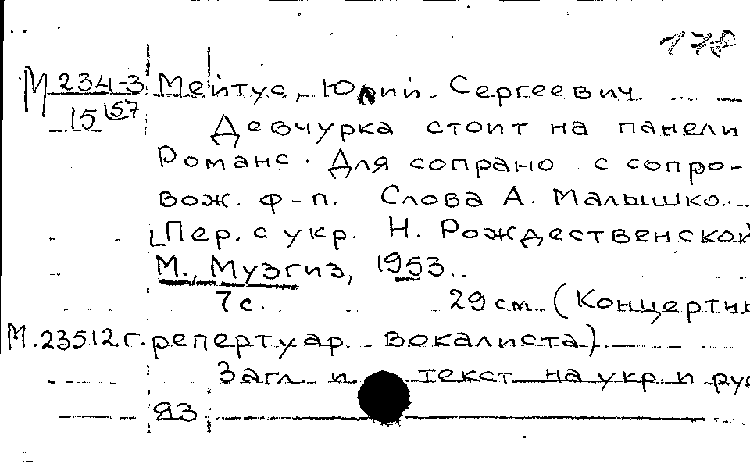 178
М 234-3 Мейтус, Юлий Сергеевич
15 57
Девчурка стоит на панели
Романс. Для сопрано с сопро-
вож. ф-п. Слова А. Малышко.
[Пер. с укр. Н. Рождественской
М., Музгиз, 1953.
7с. 29 см. (Концертн
М.23512г. репертуар вокалиста)
Загл. и текст на укр и рус
83